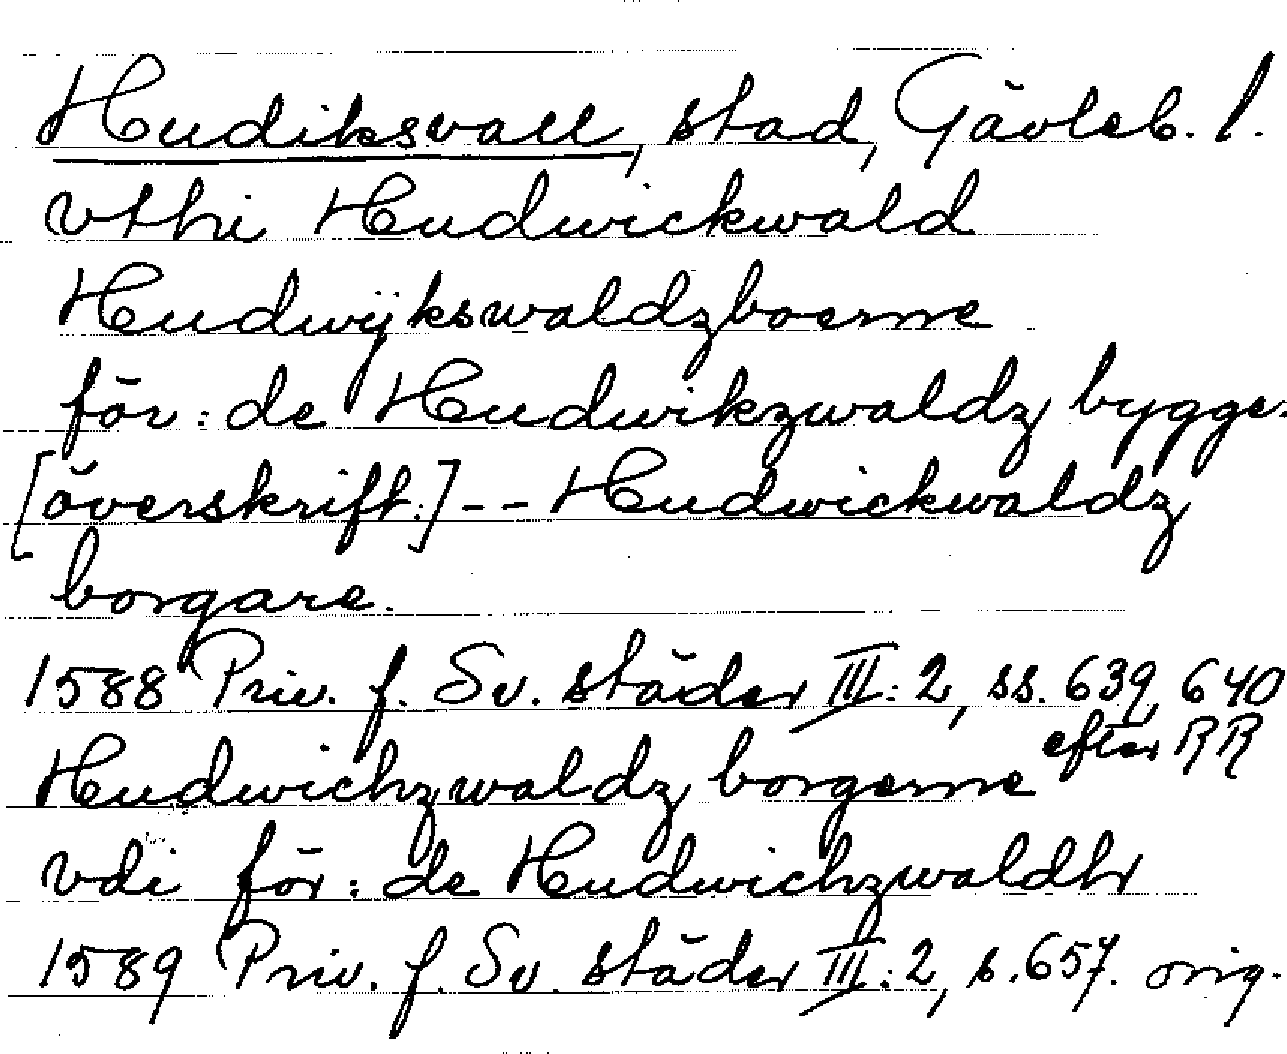 Hudiksvall, stad, Gävleb. l.
vthi Hudwickwald
Hudwijkswaldzboerne
för: de Hudwikzwaldz bygge.
[överskrift:] -- Hudwickwaldz
borgare.
1588 Priv. f. Sv. städer III: 2, ss. 639, 640
efter RR
Hudwichzwaldz borgerne
vdi för: de Hudwichzwaldhr
1589 Priv. f. Sv. städer III: 2, s. 657. orig.